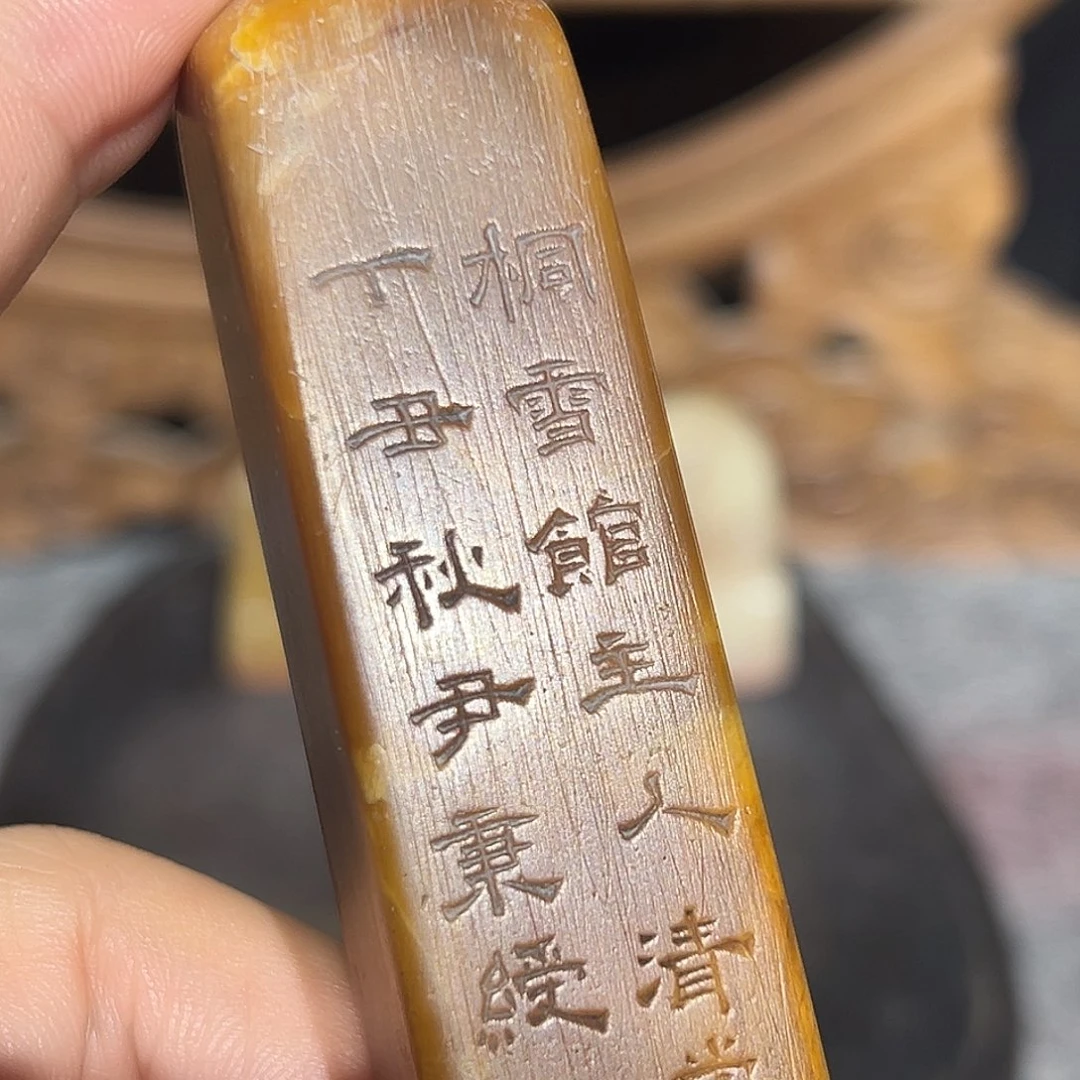 桐雪館主人清賞
丁丑秋尹秉綬